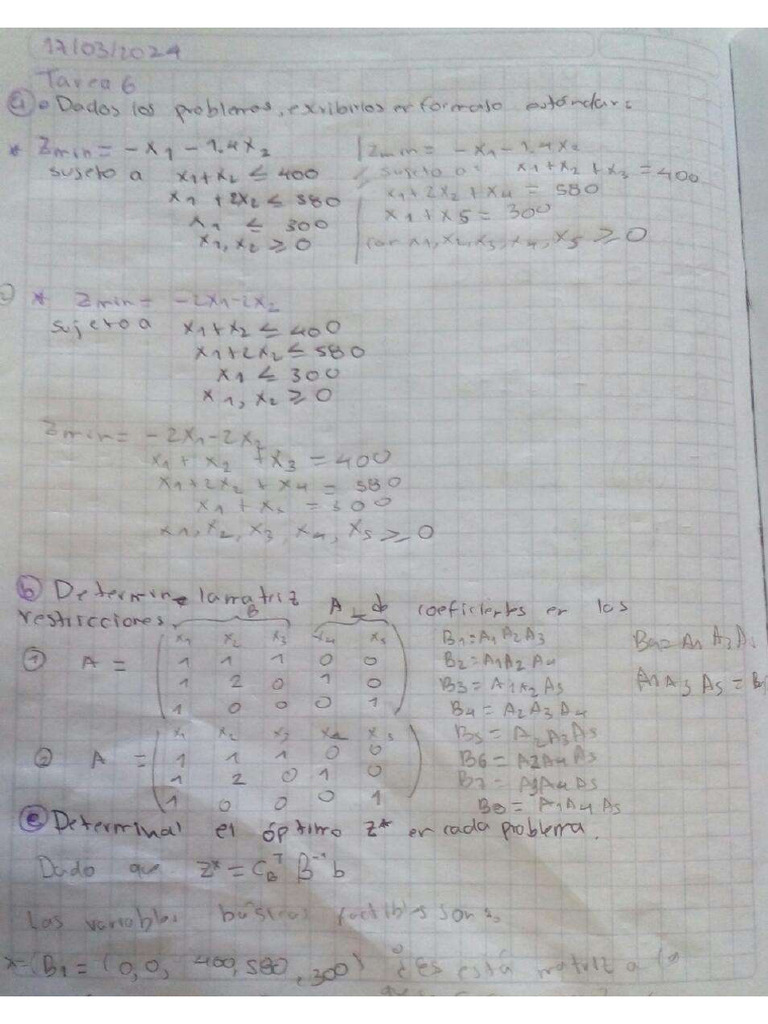 17/03/2024
Tarea 6
a • Dados los problemas, exribirlos en formato estándar:
* Zmin = -x1 - 1.4x2
sujeto a x1+x2 ≤ 400
x1 + 2x2 ≤ 580
x1 ≤ 300
x1, x2 ≥ 0
Zmin = -x1 - 1.4x2
sujeto a: x1+x2+x3 = 400
x1+2x2+x4 = 580
x1+x5 = 300
con x1,x2,x3,x4,x5 ≥ 0
* Zmin = -2x1-2x2
sujeto a x1+x2 ≤ 400
x1+2x2 ≤ 580
x1 ≤ 300
x1, x2 ≥ 0
Zmin = -2x1-2x2
x1 + x2 + x3 = 400
x1+2x2 + x4 = 580
x1 + x5 = 300
x1, x2, x3, x4, x5 ≥ 0
b Determine la matriz A de coeficientes en las
restricciones.
B
x1 x2 x3 x4 x5
1 A = 1 1 1 0 0
1 2 0 1 0
1 0 0 0 1
x1 x2 x3 x4 x5
2 A = 1 1 1 0 0
1 2 0 1 0
1 0 0 0 1
B1 = A1 A2 A3
B2 = A1 A2 A4
B3 = A1 A2 A5
B4 = A2 A3 A4
B5 = A2 A3 A5
B6 = A2 A4 A5
B7 = A3 A4 A5
B8 = A1 A4 A5
A1 A3 A5 =
e Determinal el óptimo Z* en cada problema.
Dado que Z* = CB^T B^-1 b
Las variables básicas factibles sons
B1 = (0,0, 400, 580, 300) ¿es está matriz a